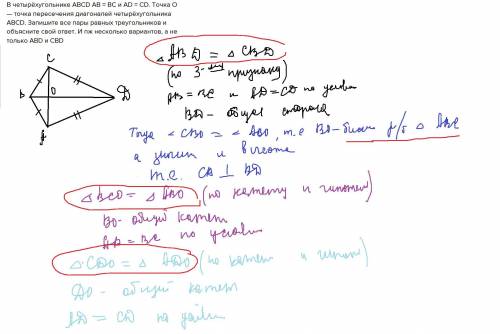 В четырёхугольнике ABCD AB = BC и AD = CD. Точка O
— точка пересечения диагоналей четырёхугольника
ABCD. Запишите все пары равных треугольников и
объясните свой ответ. И пж несколько вариантов, а не
только ABD и CBD
C
B
O
D
A
△ ABD = △ CBD
(по 3-му признаку)
AB = BC и AD = CD по условию
BD - общая сторона
Тогда ∠ CBO = ∠ ABO, т.е BO-бисс р/б △ ABC
а значит и высота
т.е. CA ⊥ BD
△ BCO = △ ABO (по катету и гипотен)
BO-общий катет
AB = BC по условию
△ CDO = △ ADO (по катет и гипот)
DO - общий катет
AD = CD по услови